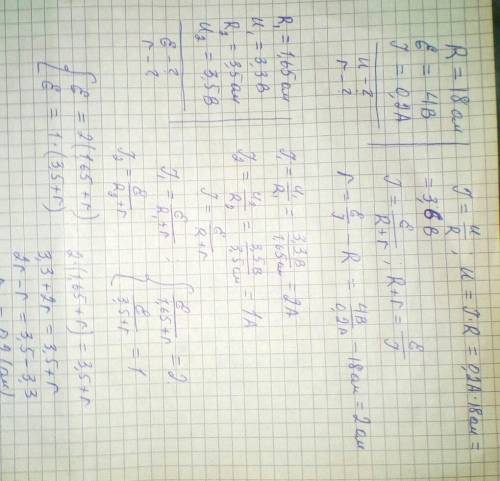 R = 18 ом
ℰ = 4В
J = 0,2А
u - ?
r - ?
J = u/R ; u = J·R = 0,2А·18ом =
= 3,6 В
J = ℰ/(R+r) ; R+r = ℰ/J
r = ℰ/J - R = 4В/0,2А - 18ом = 2 ом
R₁ = 1,65 ом
u₁ = 3,3В
R₂ = 3,5 ом
u₂ = 3,5В
ℰ - ?
r - ?
J₁ = u₁/R₁ = 3,3В/1,65ом = 2А
J₂ = u₂/R₂ = 3,5В/3,5ом = 1А
J = ℰ/(R+r)
J₁ = ℰ/(R₁+r) ;
J₂ = ℰ/(R₂+r)
{ ℰ/(1,65+r) = 2
ℰ/(3,5+r) = 1
{ ℰ = 2(1,65+r)
ℰ = 1·(3,5+r)
2(1,65+r) = 3,5+r
3,3+2r = 3,5+r
2r - r = 3,5 - 3,3